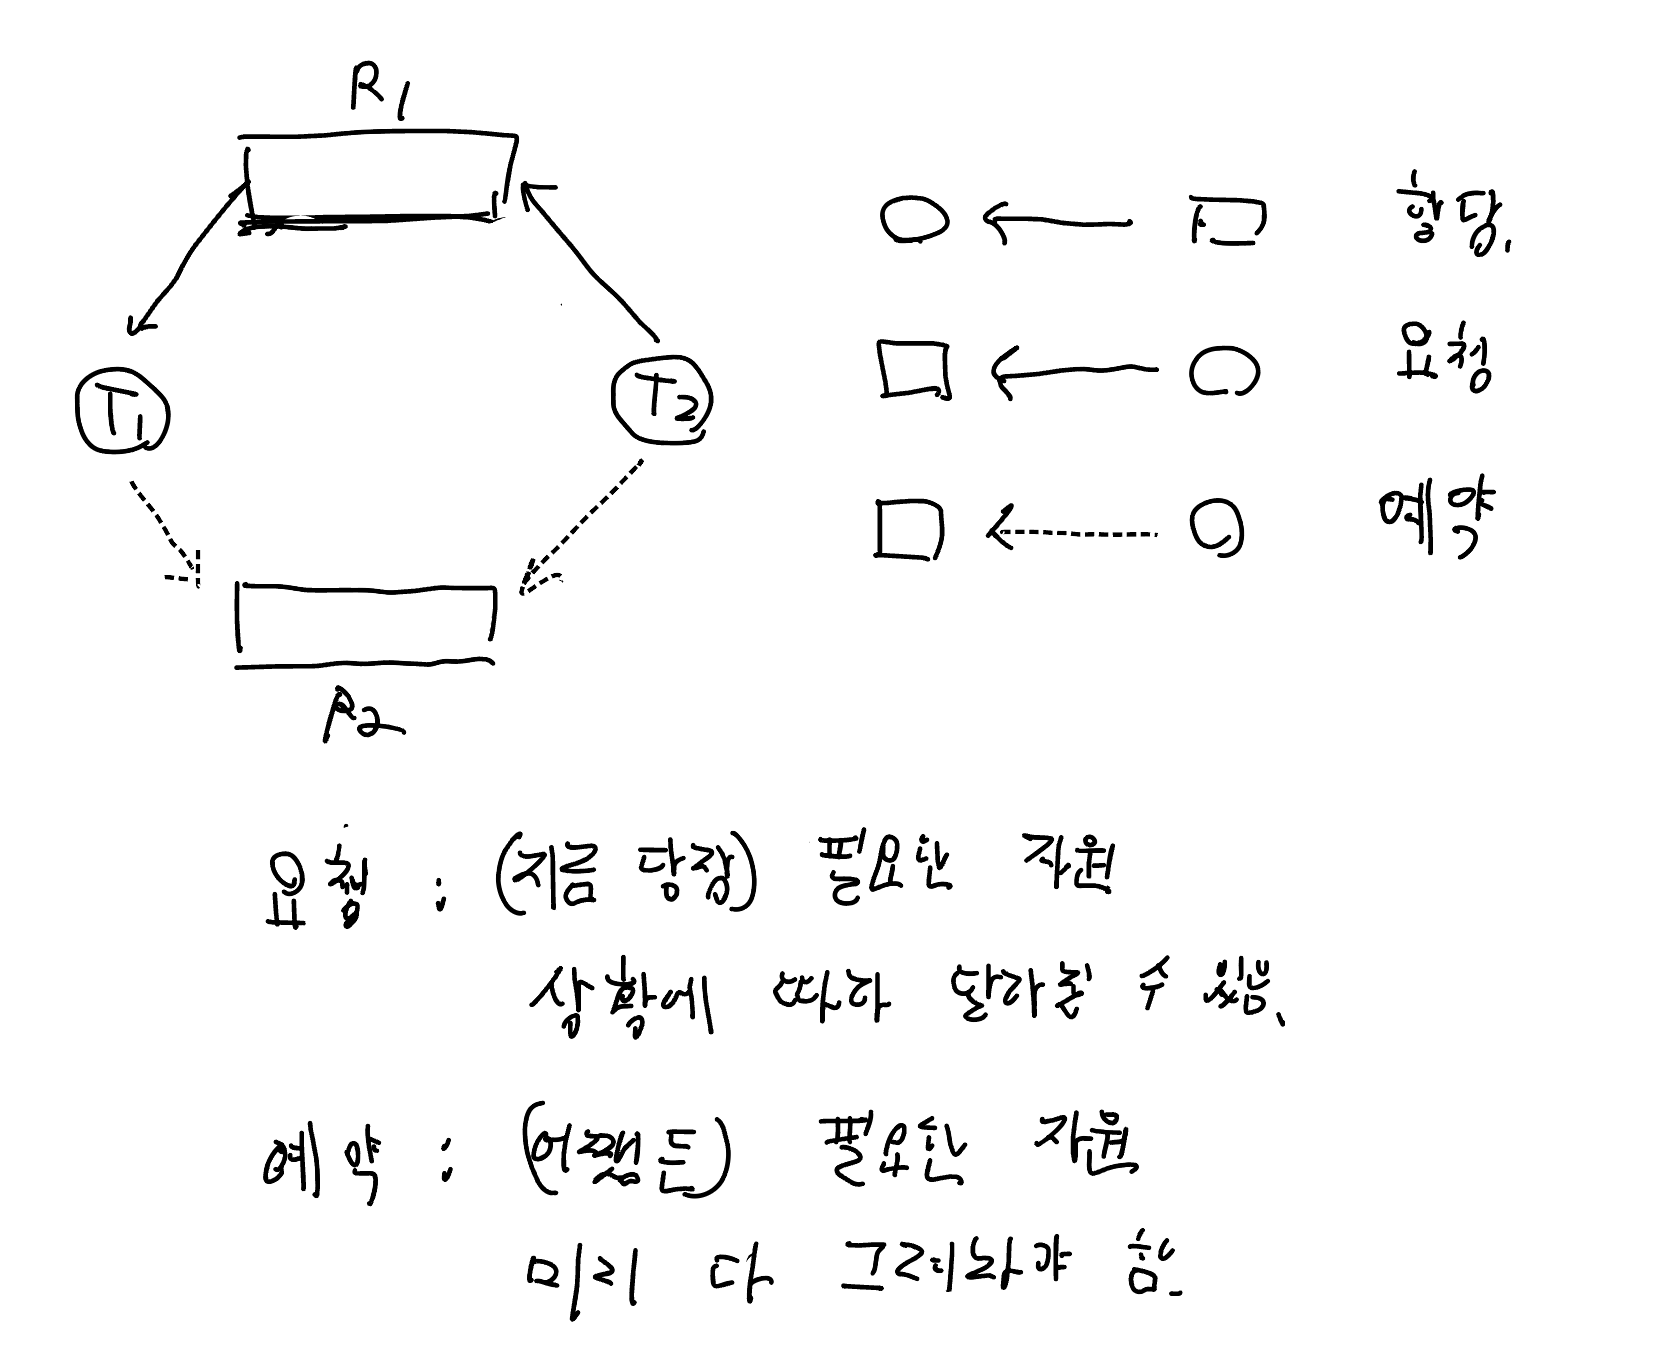 R1
할당.
T1
T2
요청
예약
R2
요청 : (지금 당장) 필요한 자원
상황에 따라 달라질 수 있음.
예약 : (어쨌든) 필요한 자원
미리 다 그려놔야 함.